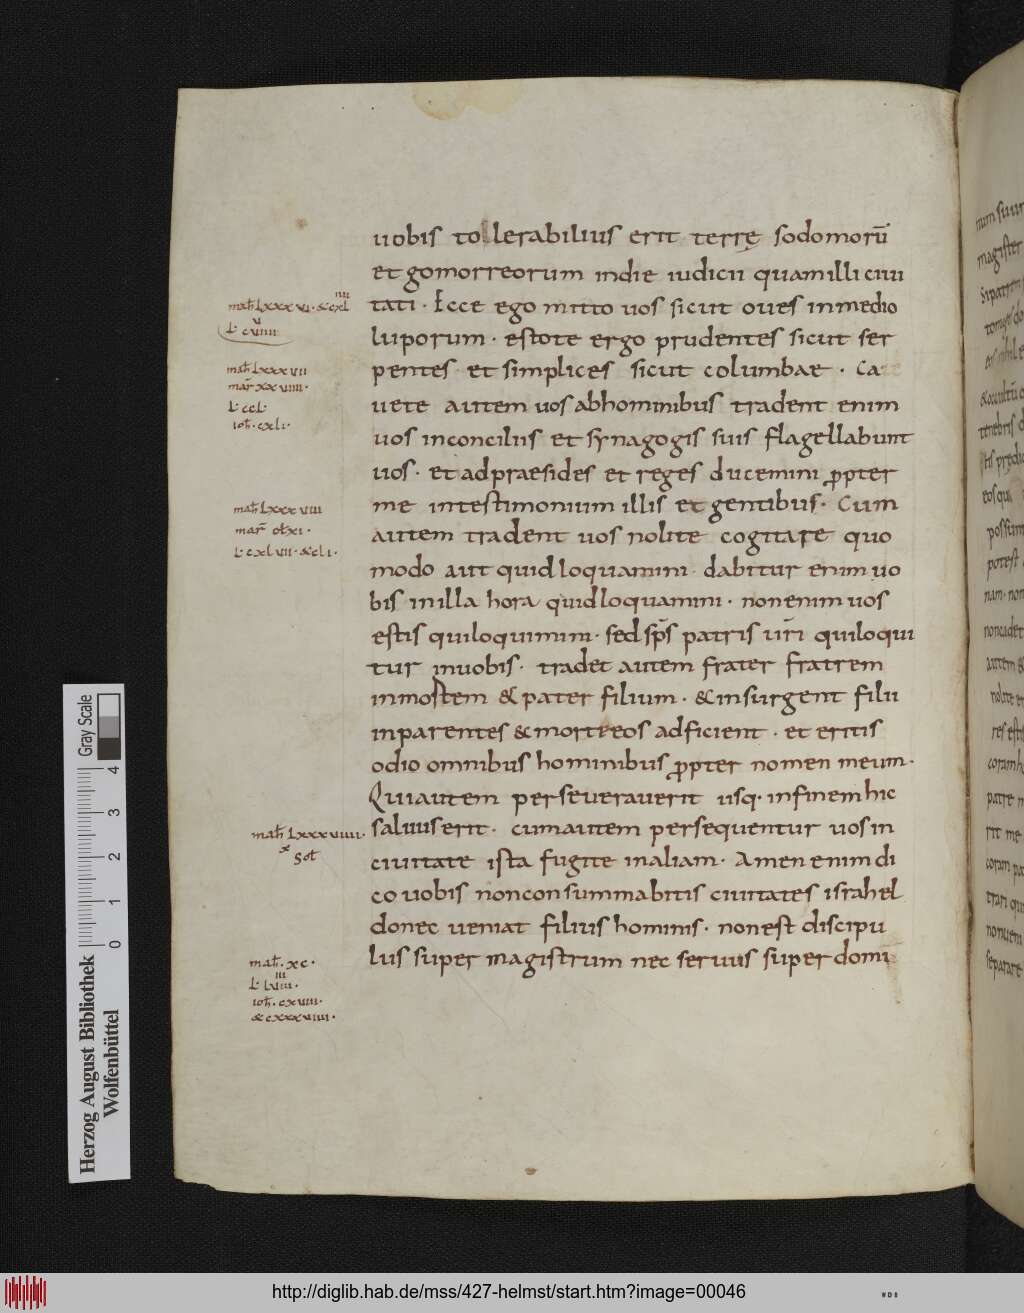 uobis tollerabilius erit terrę sodomorū
et gomorreorum indie iudicii quamilli ciui
tati · Ecce ego mitto uos sicut oues inmedio
luporum · estote ergo prudentes sicut ser
pentes et simplices sicut columbae · Ca
uete autem uos abhominibus tradent enim
uos inconciliis et synagogis suis flagellabunt
uos · et adpraesides et reges ducemini ꝓpter
me intestimonium illis et gentibus · Cum
autem tradent uos nolite cogitare quo
modo aut quid loquamini dabitur enim uo
bis inilla hora quidloquamini · nonenim uos
estis quiloquimini · sed sp̄s patris ur̄i quiloqui
tur inuobis · tradet autem frater fratrem
inmortem & pater filium · & insurgent filii
inparentes & morteeos adficient · et eritis
odio omnibus hominibus ꝓpter nomen meum ·
Quiautem perseuerauerit usq · infinem hic
saluus erit · cumautem persequentur uos in
ciuitate ista fugite inaliam · Amen enim di
co uobis nonconsummabitis ciuitates israhel
donec ueniat filius hominis · nonest discipu
lus super magistrum nec seruus super domi
math lxxxvii
mar xxviiii ·
L ccL
ioh · cxli ·
math lxxxviii
L cxlvii · & cli ·
math lxxxviiii ·
sol
math · xc ·
ioh · cxviii ·
& cxxxviiii ·
magister
Gray Scale
0 1 2 3 4
Herzog August Bibliothek
Wolfenbüttel
http://diglib.hab.de/mss/427-helmst/start.htm?image=00046